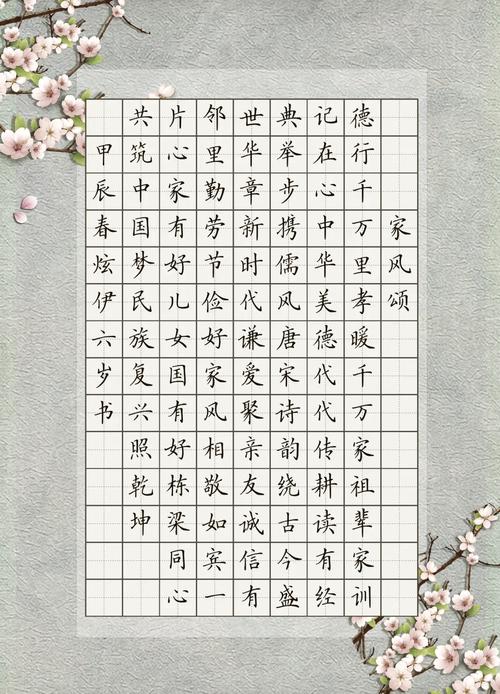 家风颂
德行千万里孝暖千万家祖辈家训
记在心中华美德代代传耕读有经
典举步携儒风唐宋诗韵绕古今盛
世华章新时代谦爱聚亲友诚信有
邻里勤劳节俭好家风相敬如宾一
片心家有好儿女国有好栋梁同心
共筑中国梦民族复兴照乾坤
甲辰春炫伊六岁书